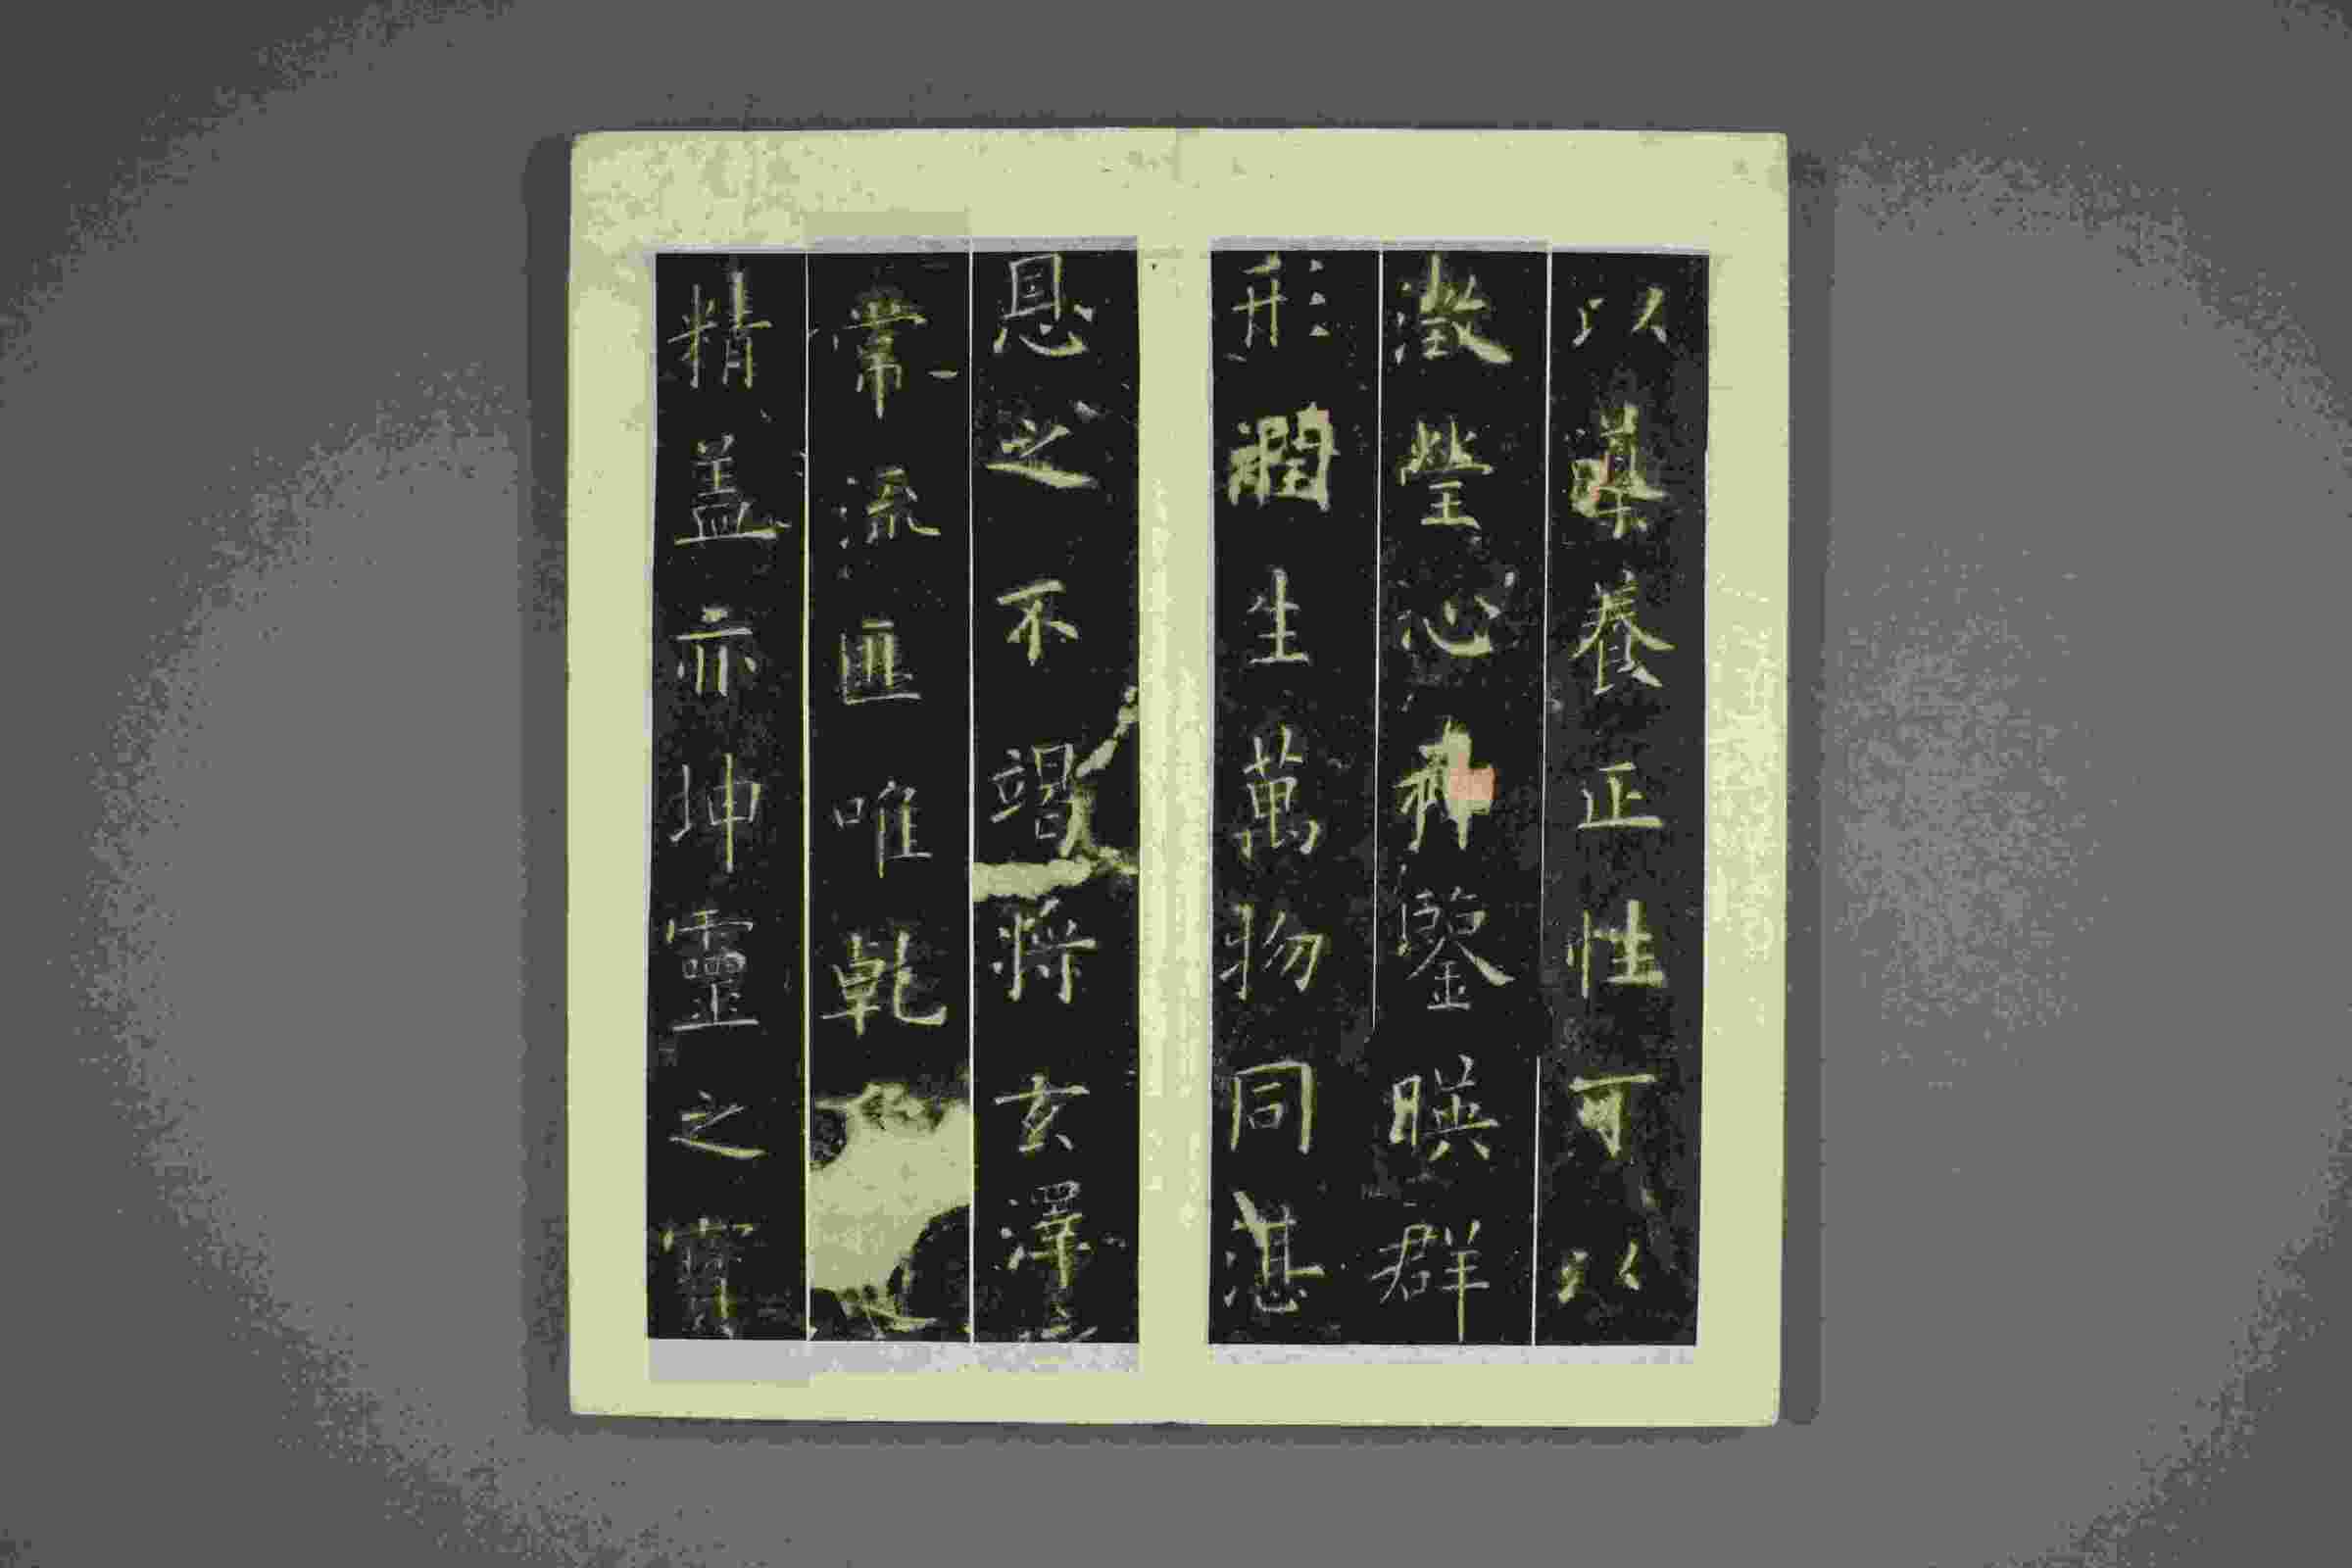 以導養正性可以
澂瑩心神鑒暎群
形潤生萬物同湛
恩之不竭将玄澤
常流匪唯乾
精盖亦坤靈之寶